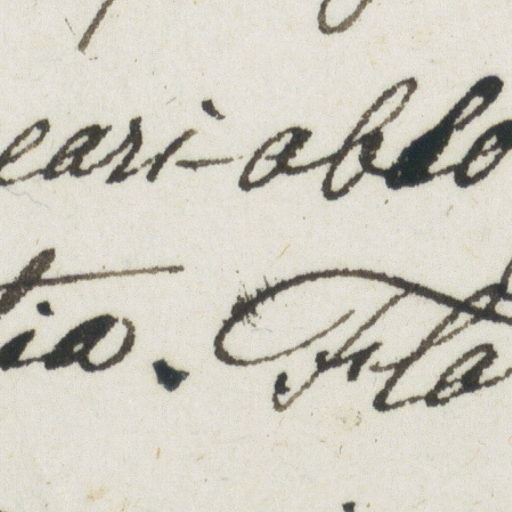 eari-oblo
tia. Fla